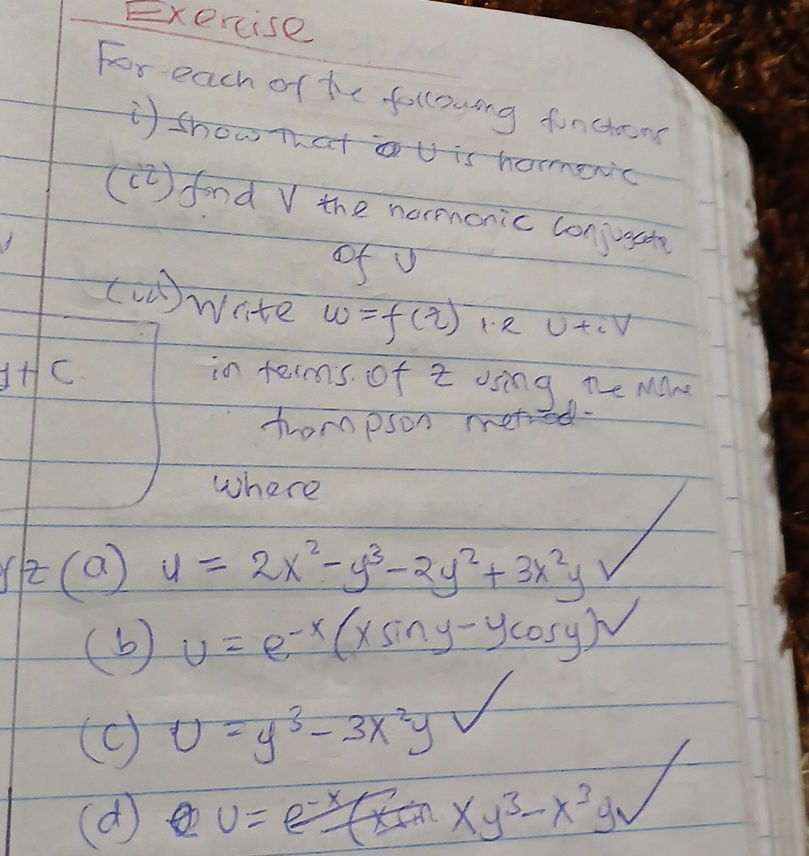 Exercise
For each of the following functions
i) show that U is harmonic
(ii) find V the harmonic conjugate
of U
(iii) Write w = f(z) i.e U+iV
y+C
in terms of z using the Milne
thompson method.
where
(a) u = 2x² - y³ - 2y² + 3x²y ✓
(b) U = e^-x (x siny - ycosy) ✓
(c) U = y³ - 3x²y ✓
(d) U = xy³ - x³y ✓